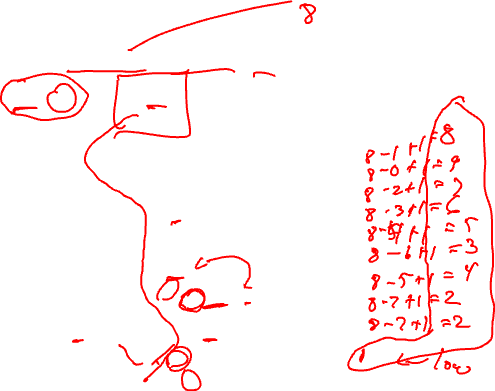 8
8-1+1=8
8-0+1=9
8-2+1=7
8-3+1=6
8-4+1=5
8-6+1=3
8-5+1=4
8-7+1=2
8-7+1=2
low